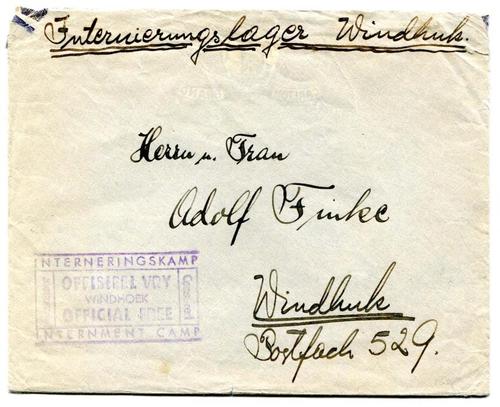 Internierungslager Windhuk.
Herrn u. Frau
Adolf Finke
Windhuk
Postfach 529.
INTERNERINGSKAMP
OFFISIEEL VRY
WINDHOEK
OFFICIAL FREE
INTERNMENT CAMP